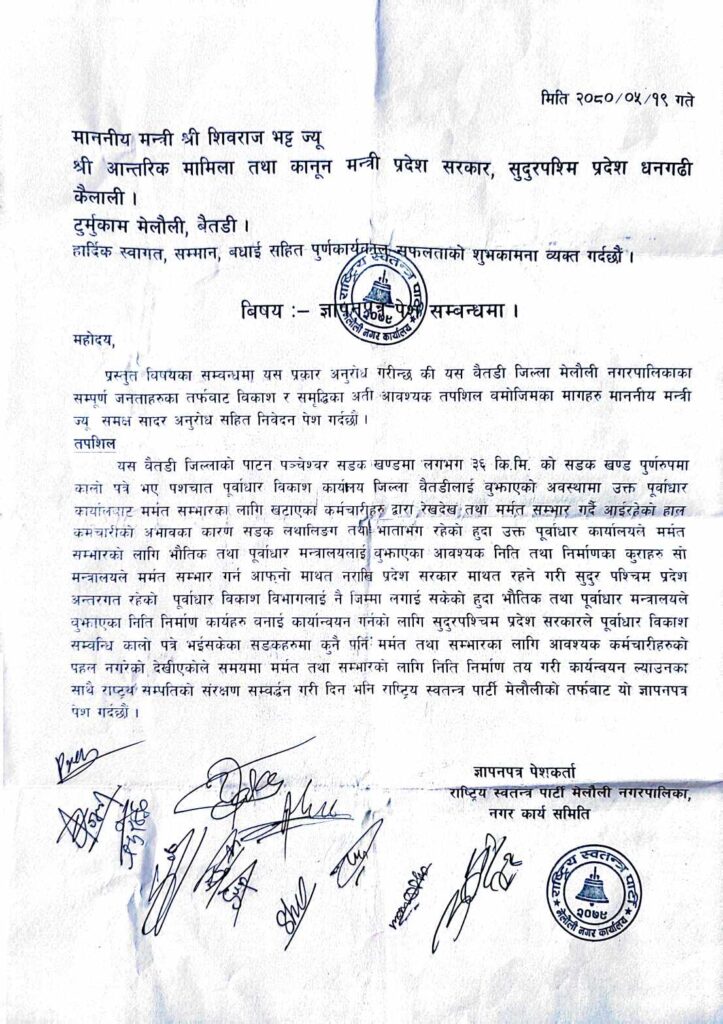 मिति २०८०/०५/१९ गते
माननीय मन्त्री श्री शिवराज भट्ट ज्यू
श्री आन्तरिक मामिला तथा कानून मन्त्री प्रदेश सरकार, सुदुरपश्मि प्रदेश धनगढी
कैलाली ।
टुर्मुकाम मेलौली, बैतडी ।
हार्दिक स्वागत, सम्मान, बधाई सहित पुर्णकार्यकाल सफलताको शुभकामना व्यक्त गर्दछौं ।
राष्ट्रिय स्वतन्त्र पार्टी
२०७९
मेलौली नगर कार्यालय
बिषय :– ज्ञापनपत्र पेश सम्बन्धमा ।
महोदय,
प्रस्तुत विषयका सम्वन्धमा यस प्रकार अनुरोध गरीन्छ की यस वैतडी जिल्ला मेलौली नगरपालिकाका
सम्पूर्ण जनताहरुका तर्फवाट विकाश र समृद्धिका अती आवश्यक तपशिल वमोजिमका मागहरु माननीय मन्त्री
ज्यू समक्ष सादर अनुरोध सहित निवेदन पेश गर्दछौं ।
तपशिल
यस वैतडी जिल्लाको पाटन पञ्चेश्वर सडक खण्डमा लगभग ३६ कि.मि. को सडक खण्ड पुर्णरुपमा
कालो पत्रे भए पशचात पूर्वाधार विकाश कार्यालय जिल्ला वैतडीलाई वुझाएको अवस्थामा उक्त पूर्वाधार
कार्यालवाट मर्मत सम्भारका लागि खटाएका कर्मचारीहरु द्वारा रेखदेख तथा मर्मत सम्भार गर्दै आईरहेको हाल
कर्मचारीको अभावका कारण सडक लथालिङग तथा भाताभंग रहेको हुदा उक्त पूर्वाधार कार्यालयले मर्मत
सम्भारको लागि भौतिक तथा पूर्वाधार मन्त्रालयलाई वुझाएका आवश्यक निति तथा निर्माणका कुराहरु सो
मन्त्रालयले मर्मत सम्भार गर्न आफ्नो माथत नराखि प्रदेश सरकार माथत रहने गरी सुदुर पश्चिम प्रदेश
अन्तरगत रहेको पूर्वाधार विकाश विभागलाई नै जिम्मा लगाई सकेको हुदा भौतिक तथा पूर्वाधार मन्त्रालयले
वुझाएका निति निर्माण कार्यहरु वनाई कार्यान्वयन गर्नको लागि सुदुरपश्चिम प्रदेश सरकारले पूर्वाधार विकाश
सम्वन्धि कालो पत्रे भईसकेका सडकहरुमा कुनै पनि मर्मत तथा सम्भारका लागि आवश्यक कर्मचारीहरुको
पहल नगरेको देखीएकोले समयमा मर्मत तथा सम्भारको लागि निति निर्माण तय गरी कार्यन्वयन ल्याउनका
साथै राष्ट्रय सम्पतिको संरक्षण सम्वर्द्धन गरी दिन भनि राष्ट्रिय स्वतन्त्र पार्टी मेलौलीको तर्फबाट यो ज्ञापनपत्र
पेश गर्दछौं ।
ज्ञापनपत्र पेशकर्ता
राष्ट्रिय स्वतन्त्र पार्टी मेलौली नगरपालिका,
नगर कार्य समिति
राष्ट्रिय स्वतन्त्र पार्टी
२०७९
मेलौली नगर कार्यालय